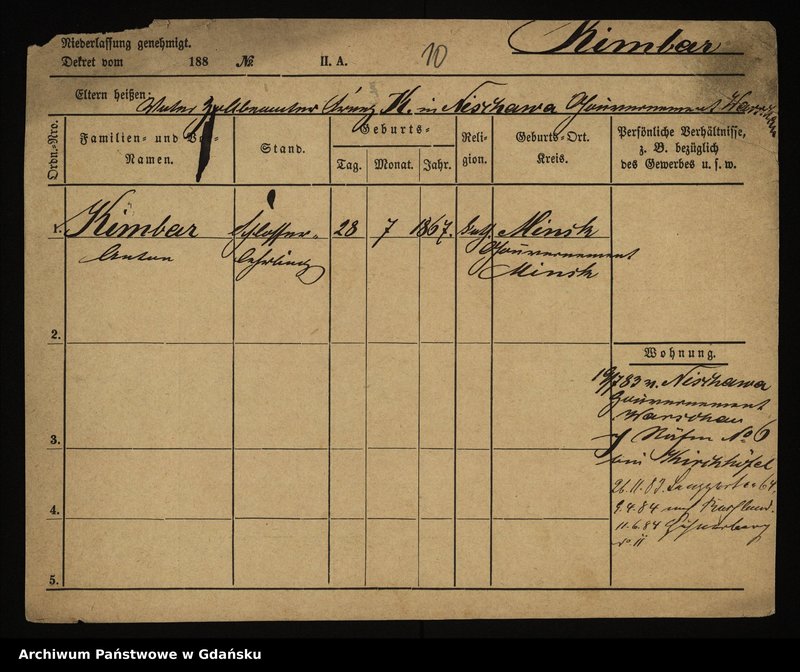 Niederlassung genehmigt.
Dekret vom 188 № II. A.
10
Kimbar
Eltern heißen: Vater Zollbeamter Franz K. in Nischawa Gouvernement Warschau
Ordn.-Nro.
Familien- und Vor-Namen.
Stand.
Geburts-
Tag. Monat. Jahr.
Religion.
Geburts-Ort.
Kreis.
Persönliche Verhältnisse,
z. B. bezüglich
des Gewerbes u. s. w.
1. Kimbar Schlosser- 28 7 1867. kath. Minsk
Anton lehrling Gouvernement
Minsk
2.
Wohnung.
19/7 83 v. Nischawa
Gouvernement
Warschau
3.
No 6
bei Kirschhöfel
26.11.83. Langgarten 64.
4.
9.4.84 nach Russland.
11.6.84
5.